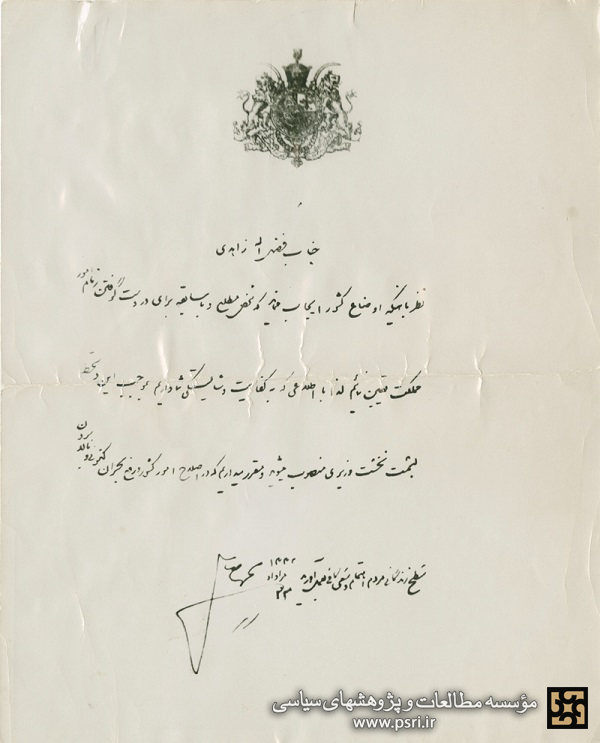 جناب فضل اله زاهدی
نظر باینکه اوضاع کشور ایجاب مینماید که شخص مطلع و با سابقه برای در دست گرفتن زمام امور
مملکت تعیین نمائیم لذا با اطلاعی که به کفایت و شایستگی شما داریم بموجب این دستخط
بسمت نخست وزیری منصوب میشوید و مقرر میداریم که در اصلاح امور کشور و رفع بحران کنونی و بالا بردن
سطح زندگانی مردم اهتمام و سعی کافی بعمل آورید
مرداد
موسسه مطالعات و پژوهشهای سیاسی
www.psri.ir